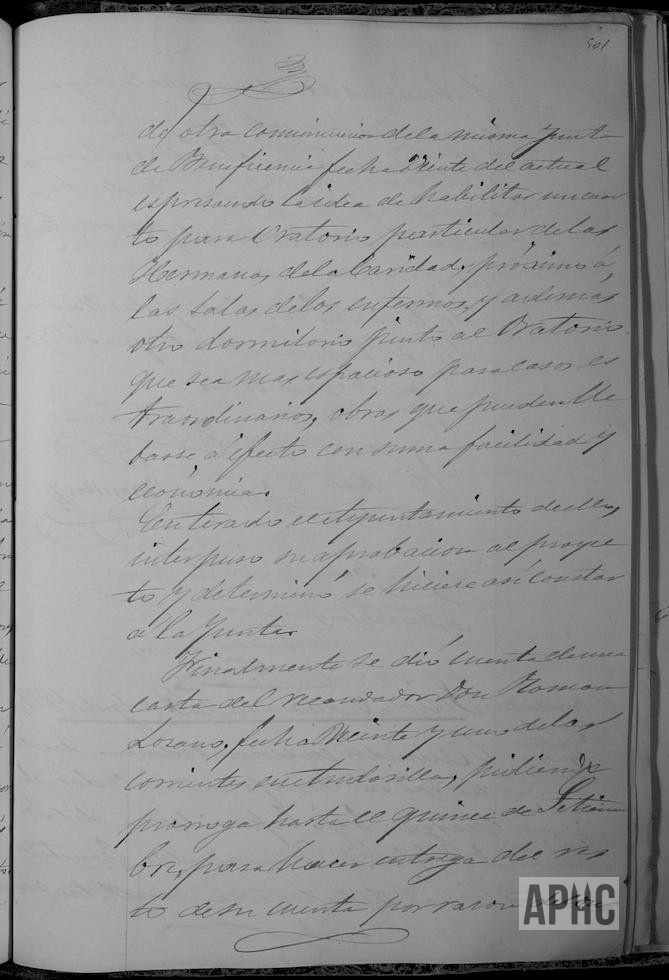 501
de otra comunicacion de la misma Junta
de Beneficencia fecha Veinte del actual
espresando la idea de habilitar un cuar
to para Oratorio particular de las
Hermanas de la Caridad, próximo á
las Salas de los enfermos, y ademas
otro dormitorio junto al Oratorio
que sea mas espacioso para casos es
traordinarios, obras que pueden lle
barse á efecto con suma facilidad y
economia.
Enterado el Ayuntamiento de ello,
interpuso su aprobacion al proyec
to y determinó se hiciese asi constar
á la Junta.
Finalmente se dió cuenta de una
carta del recaudador Don Roman
Lozano, fecha Veinte y uno de los
corrientes en pidiendo
prorroga hasta el quince de Setiem
bre, para hacer entrega del res
to de su cuenta por razon
APHC